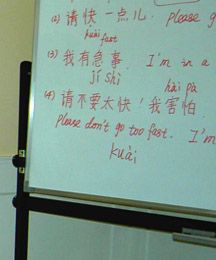 (2) 请快一点儿. Please g
kuài fast
(3) 我有急事. I'm in a
jí shì
hài pà
(4) 请不要太快！我害怕
Please don't go too fast. I'm
kuài